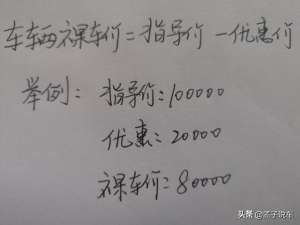 车车辆裸车价=指导价-优惠价
举例：指导价：100000
优惠：20000
裸车价=80000
头条@芝子说车